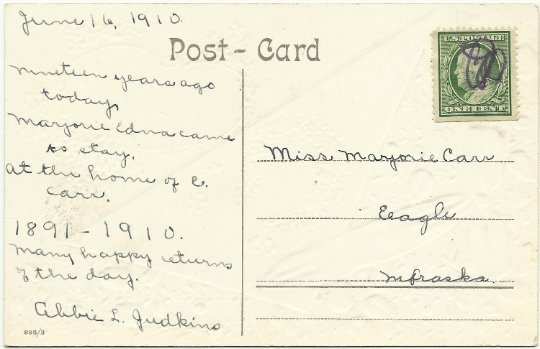 June 16, 1910.
Post-Card
U.S. POSTAGE
ONE CENT
nineteen years ago
today,
Marjorie Edna came
to stay.
at the home of E.
Carr.
1891-1910.
many happy returns
of the day.
Abbie L. Judkins
Miss Marjorie Carr
Eagle
Nebraska.
298/3